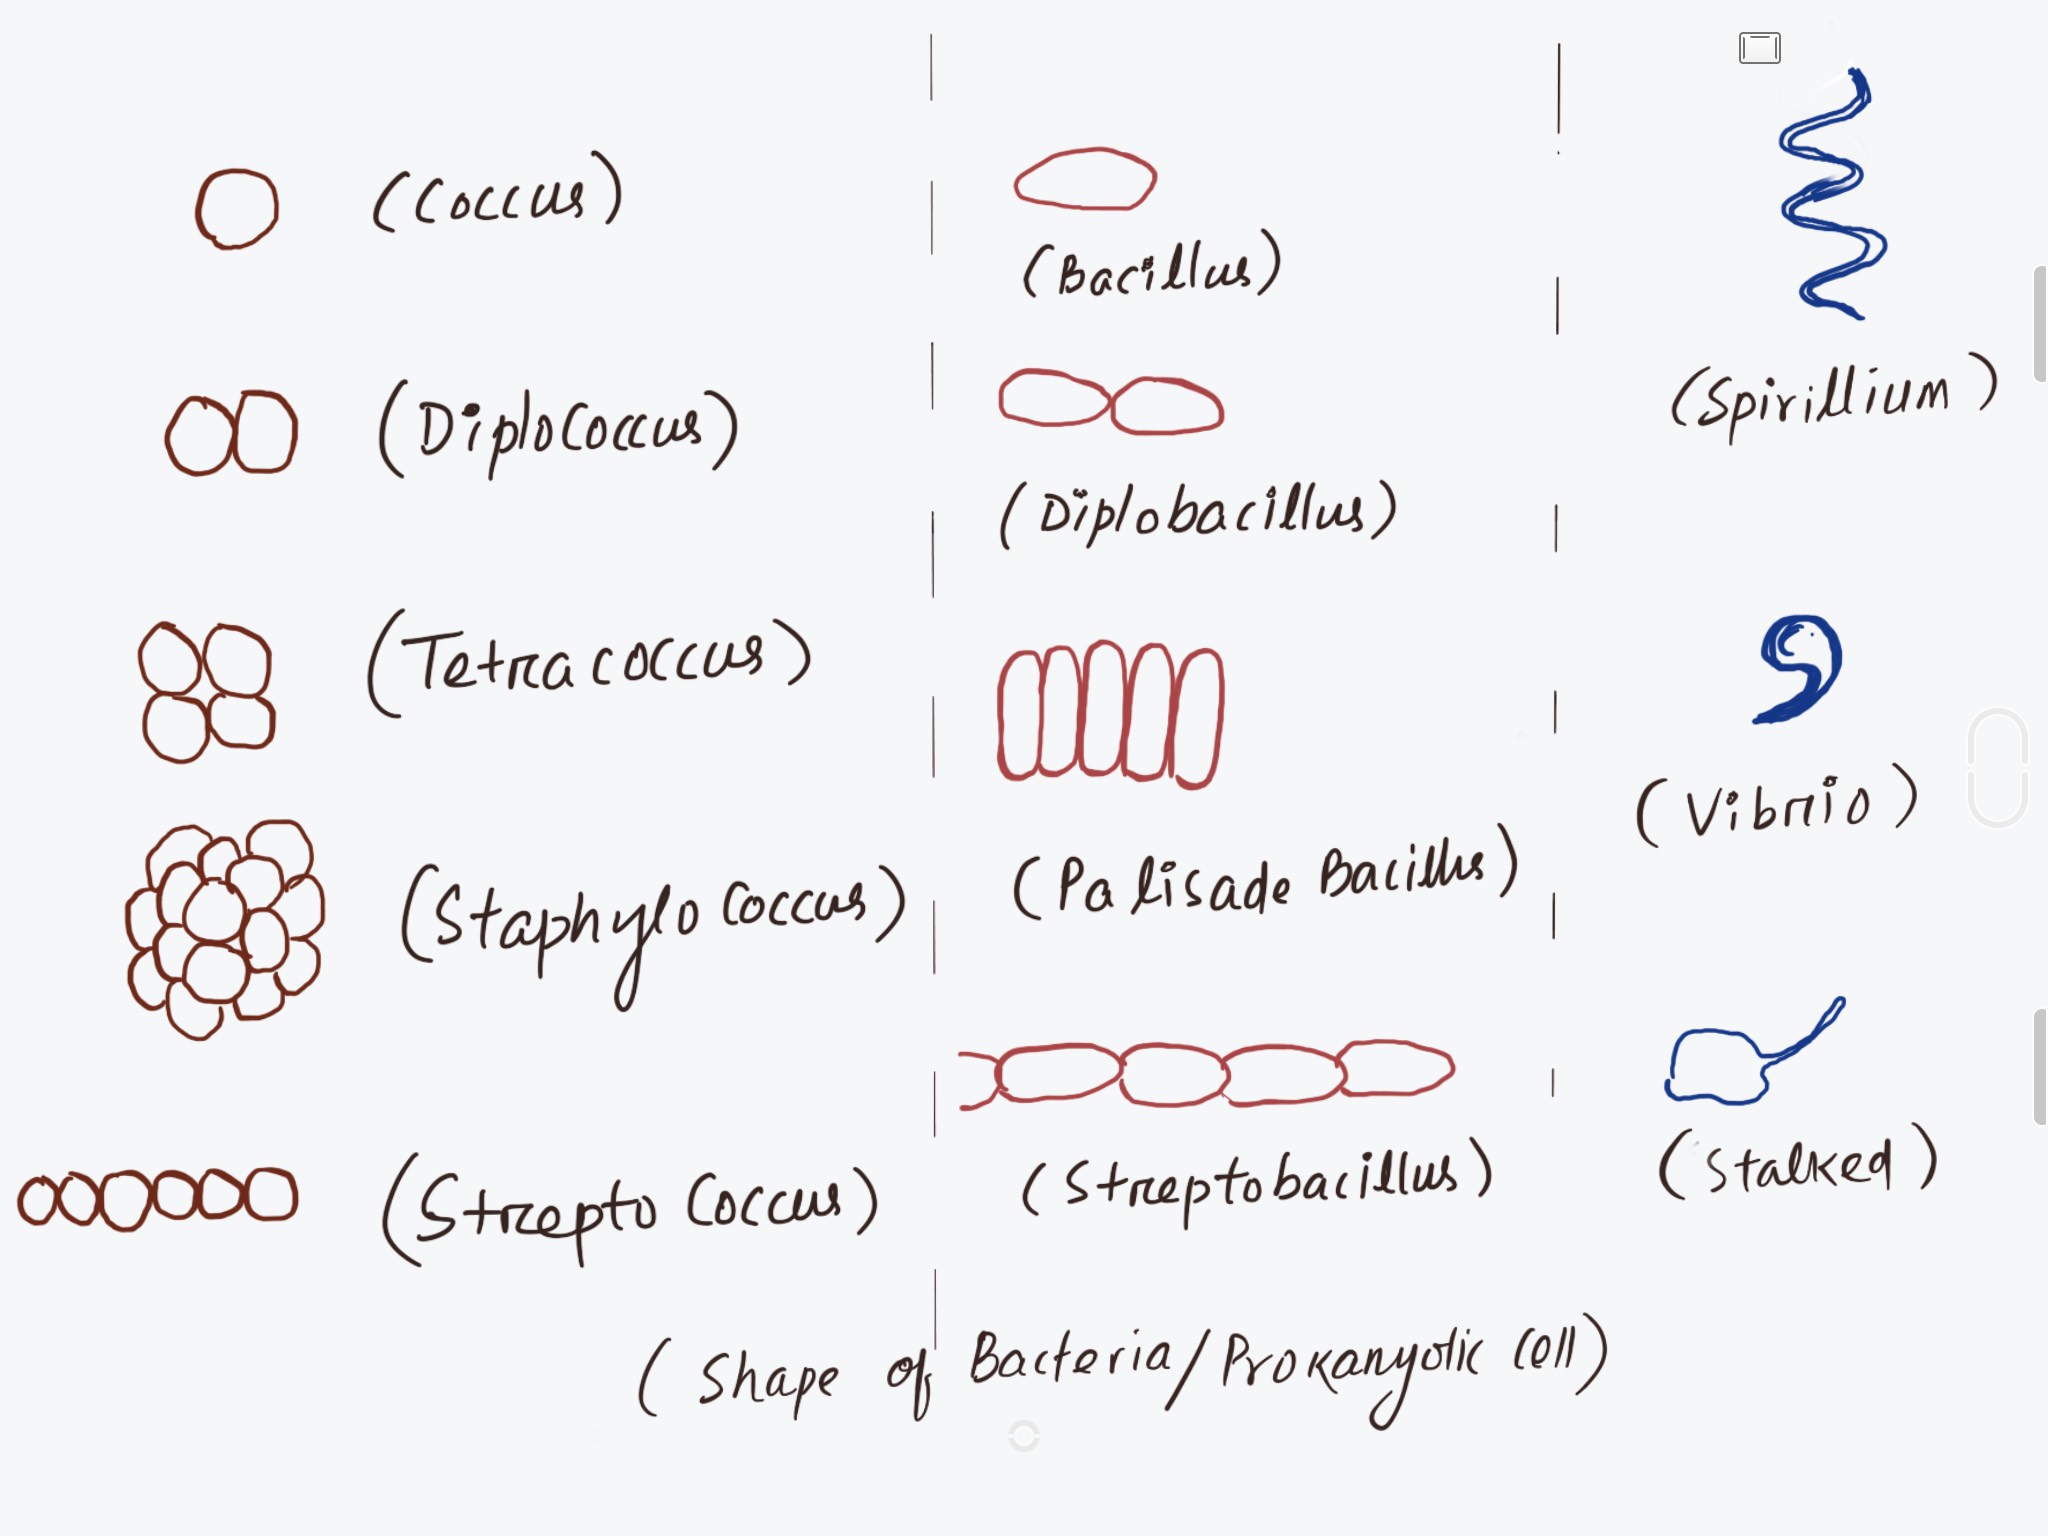 (Coccus)
(Diplococcus)
(Tetracoccus)
(Staphylo coccus)
(Strepto Coccus)
(Bacillus)
(Diplobacillus)
(Palisade Bacillus)
(Streptobacillus)
(Spirillium)
(Vibrio)
(Stalked)
(Shape of Bacteria/Prokaryotic cell)